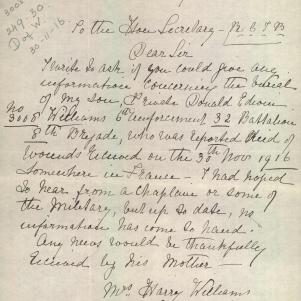 3008
229.30.
D of W.
30-11-16.
To the Hon Secretary -
Dear Sir
I write to ask if you could give any
information concerning the burial
of my son, Private Donald Edwin
No 3008 Williams reinforcement 32 Battalion
8th Brigade, who was reported died of
wounds received on the 30th Nov 1916
Somewhere in France - I had hoped
to hear from a Chaplane or some of
the Military, but up to date, no
information has come to hand -
Any news would be thankfully
received by his Mother
Mrs Harry Williams